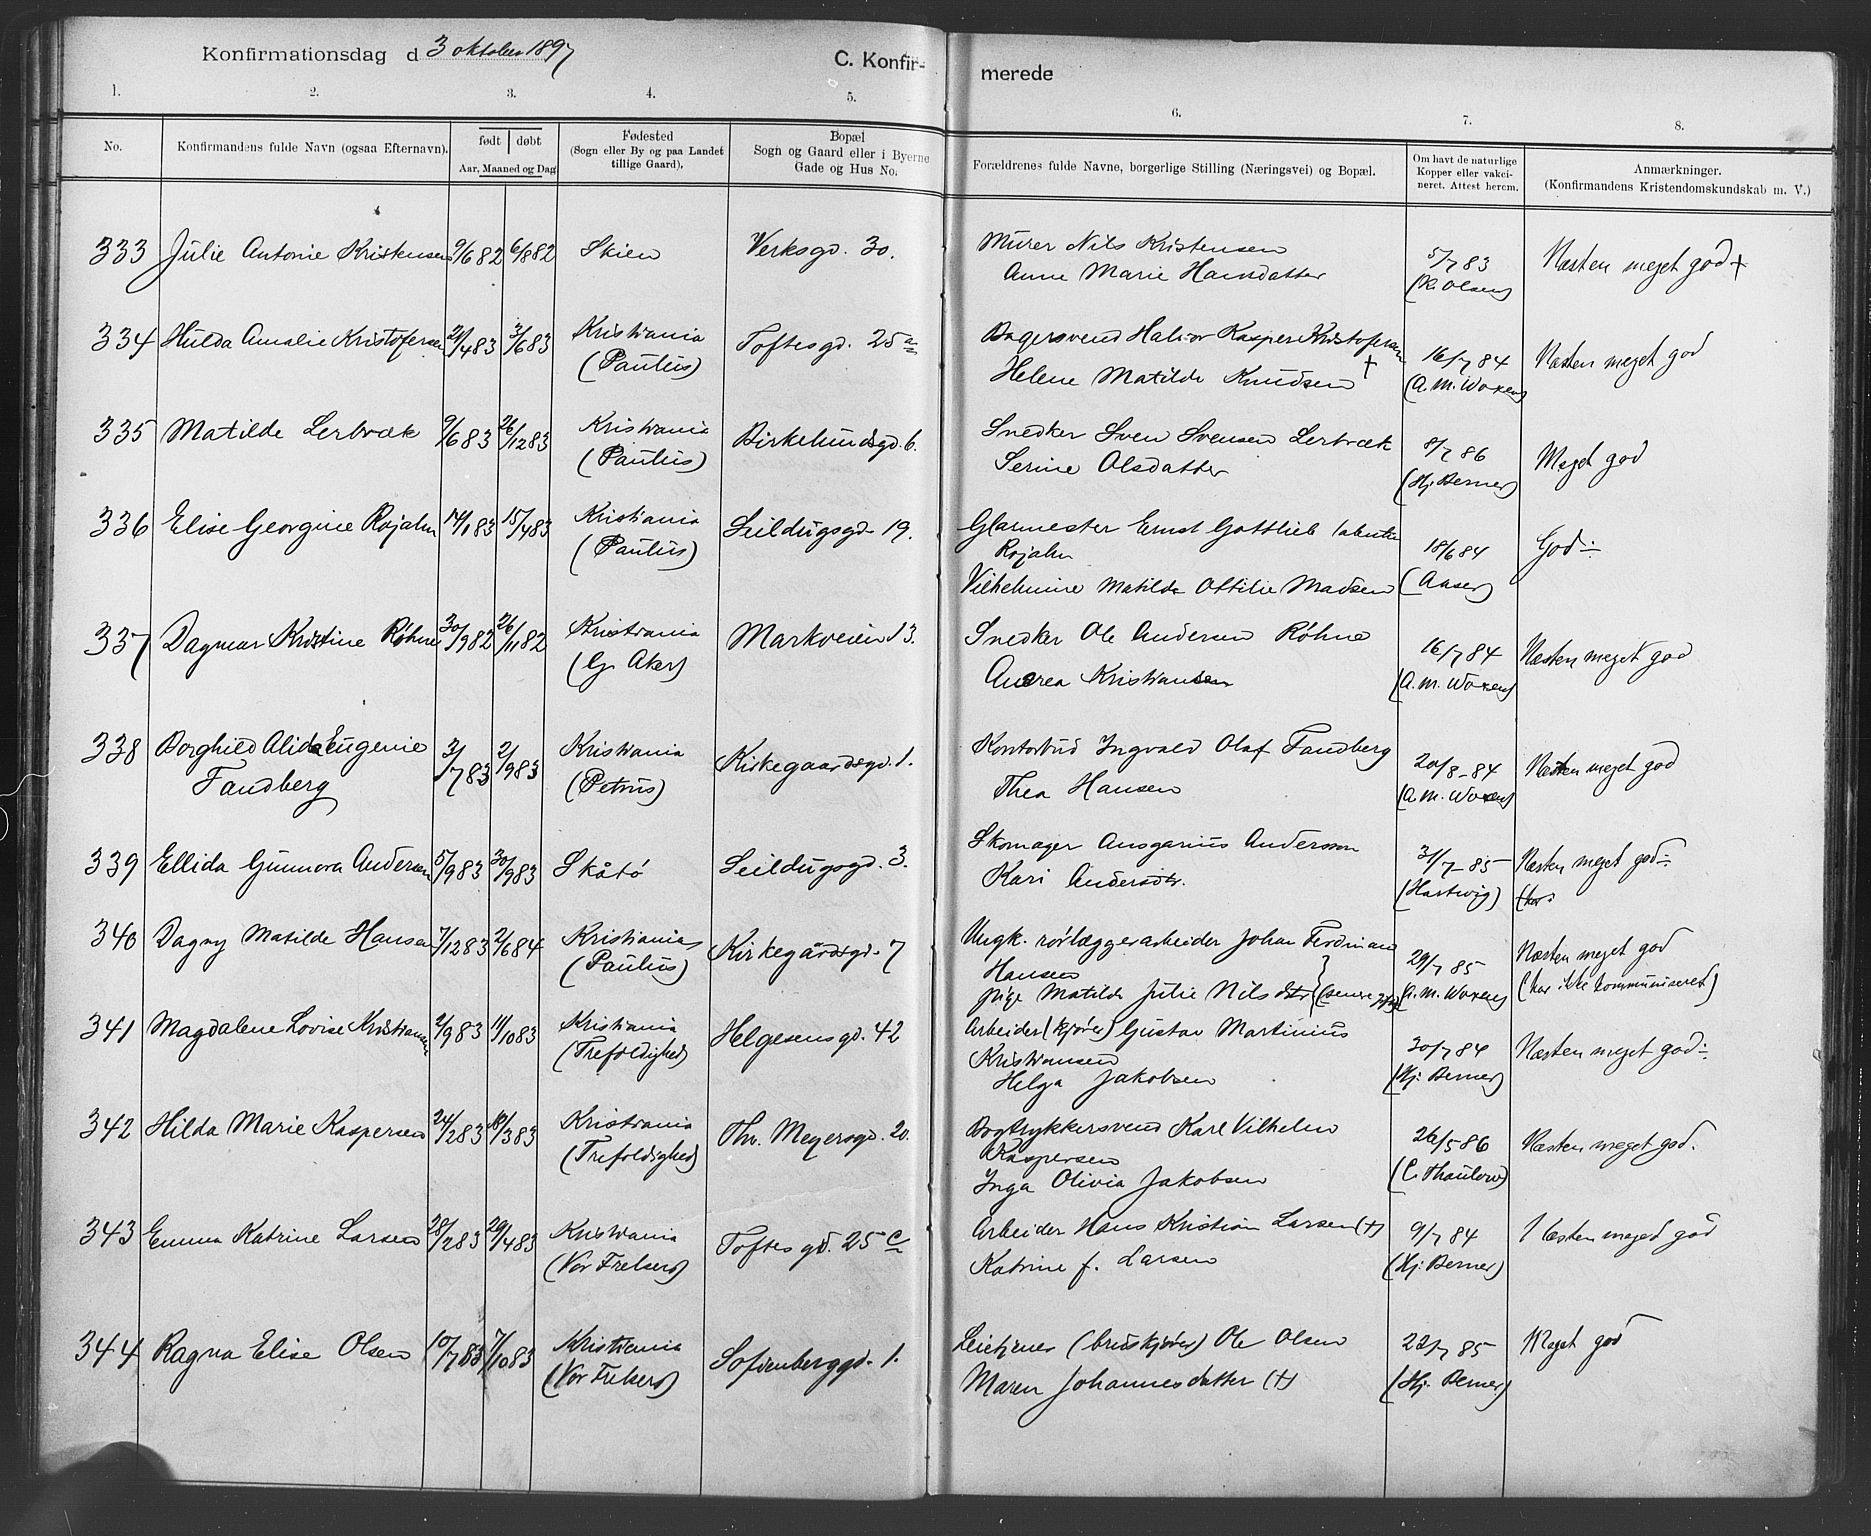 Konfirmationsdag d 3 oktober 1897
C. Konfir-
merede
1. 2. 3. 4. 5. 6. 7. 8.
No.
Konfirmandens fulde Navn (ogsaa Efternavn).
født døbt
Aar, Maaned og Dag
Fødested
(Sogn eller By og paa Landet
tillige Gaard).
Bopæl
Sogn og Gaard eller i Byerne
Gade og Hus No.
Forældrenes fulde Navne, borgerlige Stilling (Næringsvei) og Bopæl.
Om havt de naturlige
Kopper eller vakci-
neret. Attest herom.
Anmærkninger.
(Konfirmandens Kristendomskundskab m. V.)
333 Julie Antonie Kristensen 9/6 82 6/8 82 Skien Verksgd. 30. Murer Nils Kristensen 5/7 83 Næsten meget god +
Anne Marie Hansdatter (K. Olsen)
334 Hulda Amalie Kristofersen 21/4 83 3/6 83 Kristiania Toftesgd. 25 a Bagersvend Halvor Kasper Kristofersen 16/7 84 Næsten meget god
(Paulus) Helene Matilde Knudsen + (A. M. Woxen)
335 Matilde Lerbræk 9/6 83 26/12 83 Kristiania Birkelundsgd. 6. Snedker Sven Svensen Lerbræk 8/7 86 Meget god
(Paulus) Serine Olsdatter (Hj. Berner)
336 Elise Georgine Rojahn 14/1 83 15/4 83 Kristiania Seildugsgd. 19. Glarmester Ernst Gottlieb
(Paulus) Rojahn 18/6 84 God ÷
Vilhelmine Matilde Ottilie Madsen (Aaser)
337 Dagmar Kristine Røhne 30/9 82 26/11 82 Kristiania Markveien 13. Snedker Ole Andersen Røhne 16/7 84 Næsten meget god
(G. Aker) Andrea Kristiansen (A. M. Woxen)
338 Borghild Alida Eugenie 3/7 83 2/9 83 Kristiania Kirkegaardsgd. 1. Kontorbud Ingvald Olaf Fandberg 20/8 - 84 Næsten meget god
Fandberg (Petrus) Thea Hansen (A. M. Woxen)
339 Ellida Gunnora Andersen 5/9 83 30/9 83 Skåtø Seildugsgd. 3. Skomager Ansgarius Andersson 31/7 - 85 Næsten meget god ÷
Kari Andersdtr. (Hartwig) (har
340 Dagny Matilde Hansen 7/12 83 2/6 84 Kristiania Kirkegårdsgd. 7 Ungk. rørlæggerarbeider Johan Ferdinand Næsten meget god
(Paulus) Hansen 29/7 85 (har ikke kommuniseret)
pige Matilde Julie Nilsdtr (senere gift) (A. M. Woxen)
341 Magdalene Lovise Kristiansen 2/9 83 11/10 83 Kristiania Helgesensgd. 42 Arbeider (kjører) Gustav Martinius
(Trefoldighed) Kristiansen 30/7 84 Næsten meget god ÷
Helga Jakobsen (Hj. Berner)
342 Hilda Marie Kaspersen 24/2 83 18/3 83 Kristiania Thv. Meyersgd. 20. Bogtrykkersvend Karl Vilhelm
(Trefoldighed) Kaspersen 26/5 86 Næsten meget god.
Inga Olivia Jakobsen (C. Thaulow)
343 Emma Katrine Larsen 28/2 83 29/4 83 Kristiania Toftes gd. 25 c Arbeider Hans Kristian Larsen (+) 9/7 84 Næsten meged god
(Vor Frelsers) Katrine f. Larsen (Hj. Berner)
344 Ragna Elise Olsen 10/7 83 7/10 83 Kristiania Sofienberggd. 1. Leietjener (bruskjører) Ole Olsen 22/7 85 Meget god
(Vor Frelsers) Maren Johannesdatter (+) (Hj. Berner)